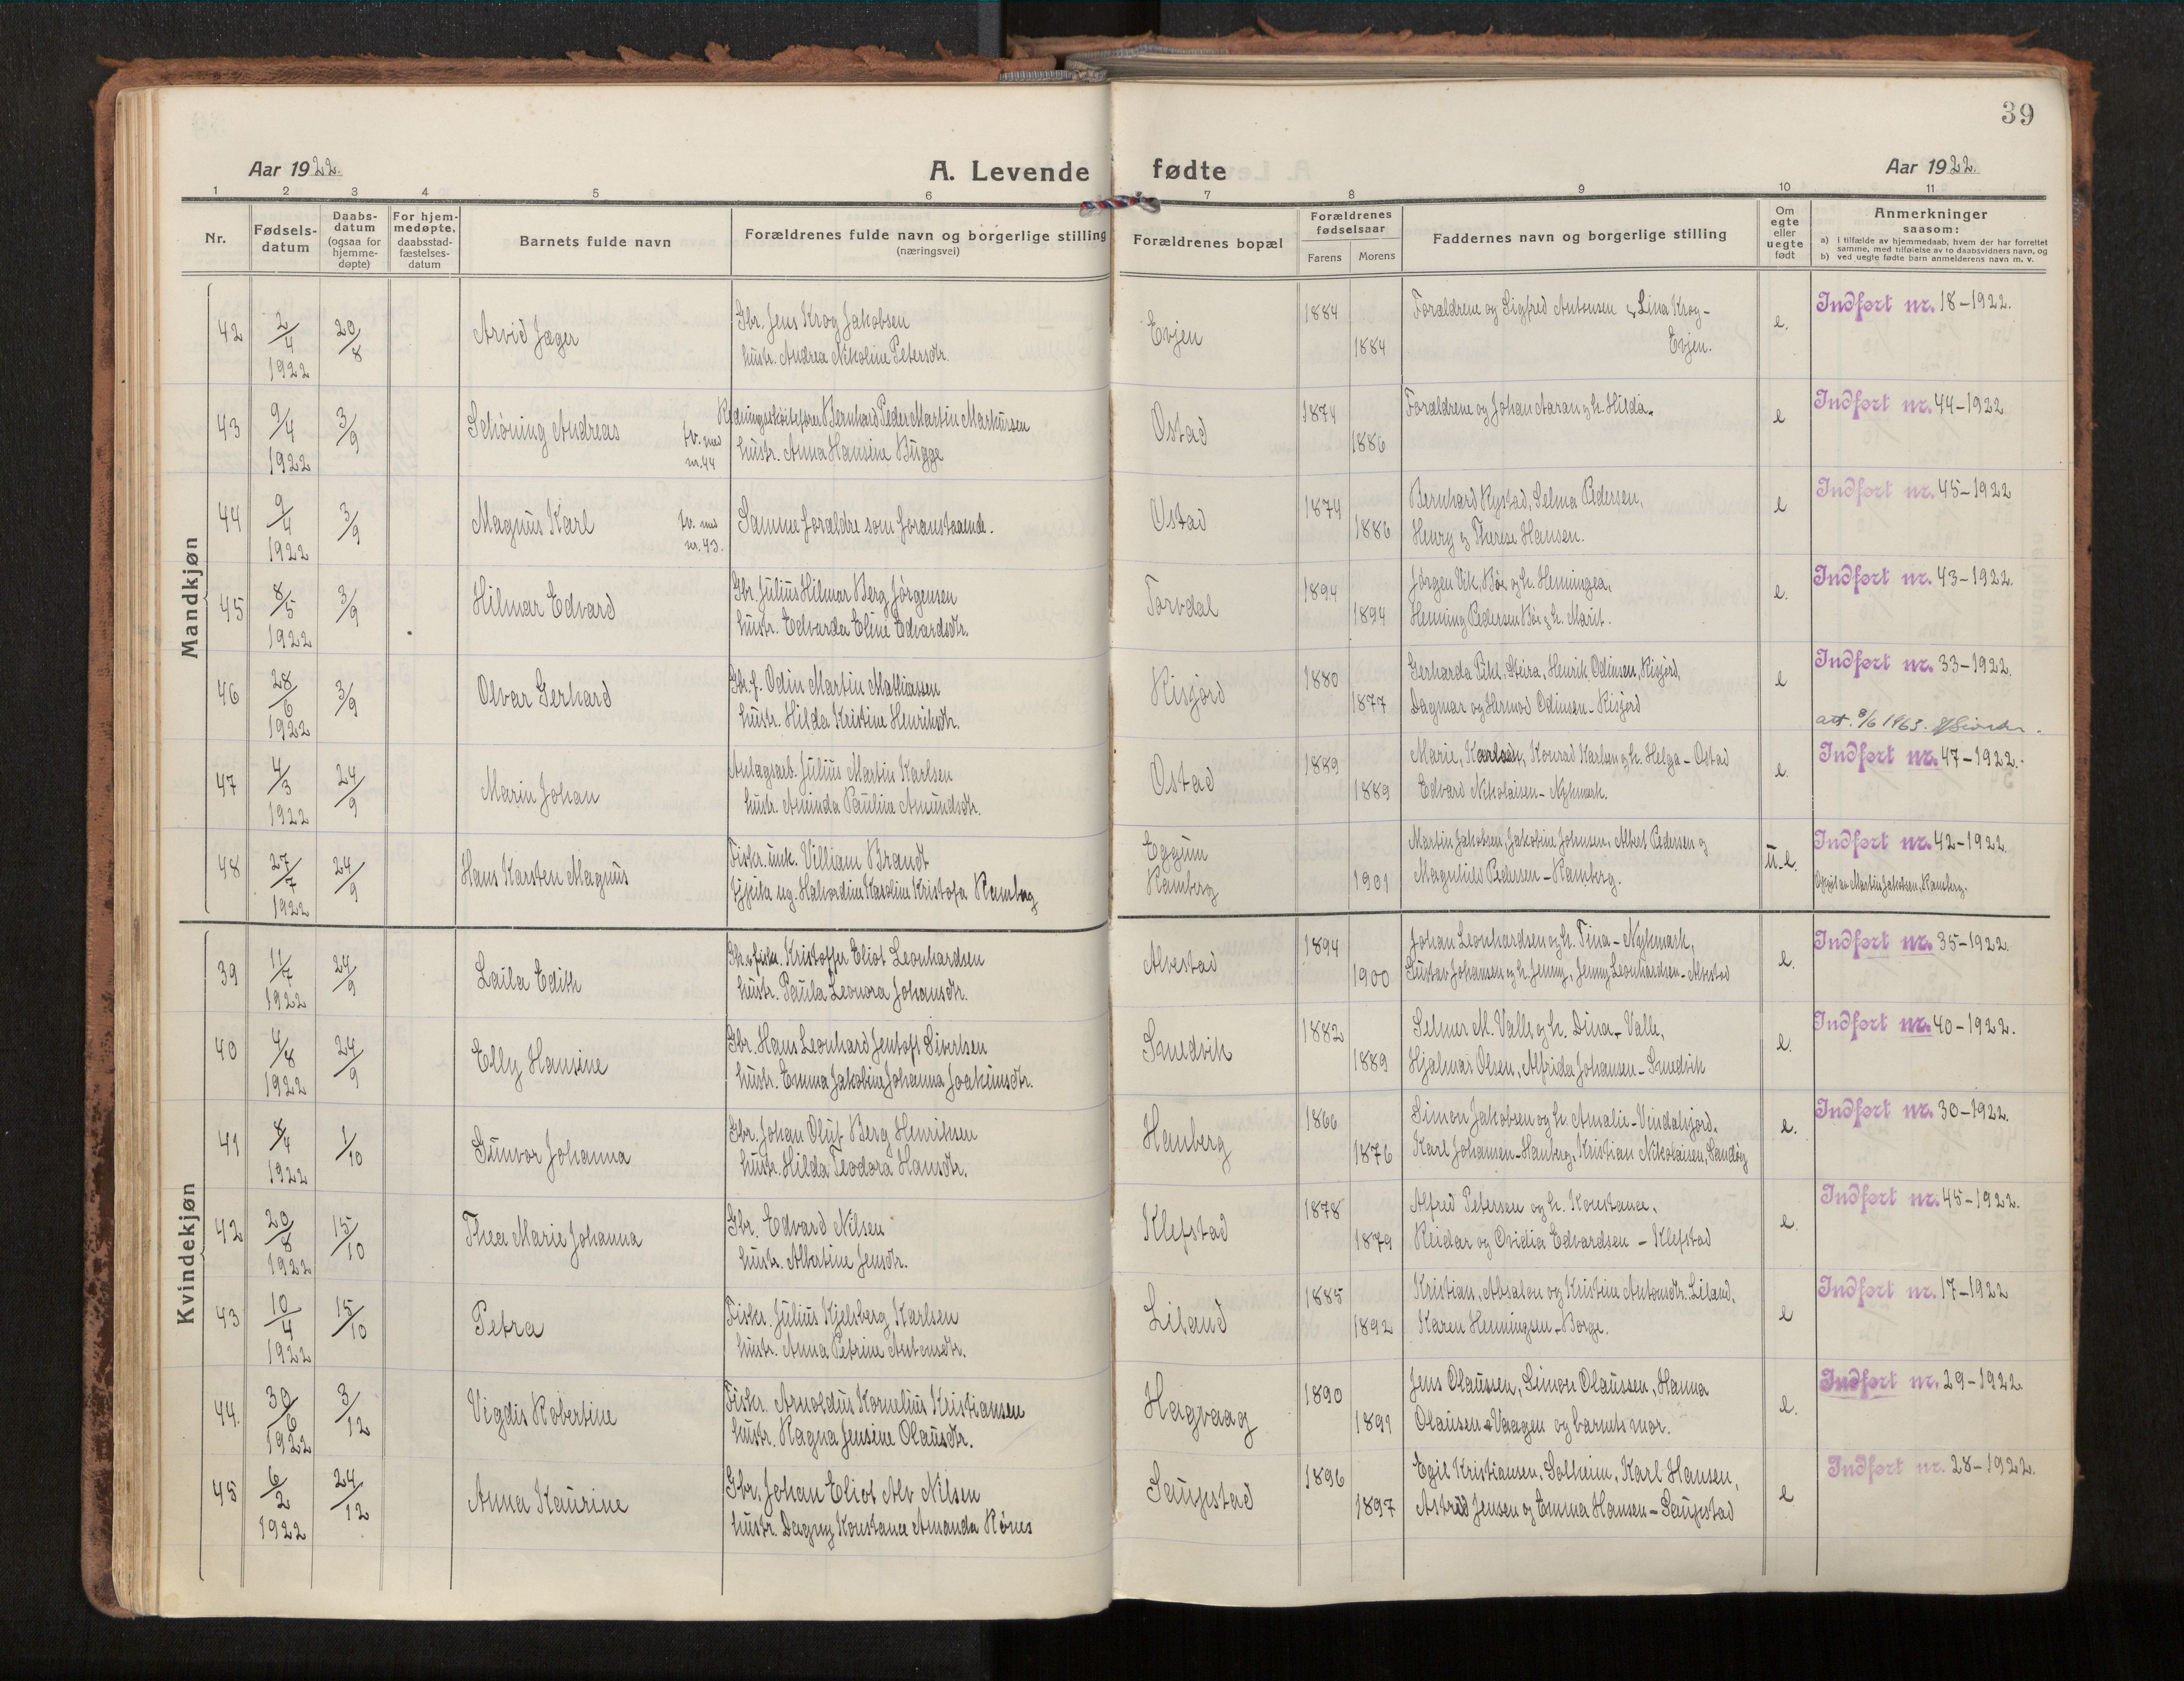 39
Aar 1922.
A. Levende fødte
Aar 1922.
1 2 3 4 5 6 7 8 9 10 11
Nr.
Fødsels-
datum
Daabs-
datum
(ogsaa for
hjemme-
døpte)
For hjem-
medøpte,
daabsstad-
fæstelses-
datum
Barnets fulde navn
Forældrenes fulde navn og borgerlige stilling
(næringsvei)
Forældrenes bopæl
Forældrenes
fødselsaar
Farens Morens
Faddernes navn og borgerlige stilling
Om
egte
eller
uegte
født
Anmerkninger
saasom:
a) i tilfælde av hjemmedaab, hvem der har forrettet
samme, med tilføielse av to daabsvidners navn, og
b) ved uegte fødte barn anmelderens navn m. v.
Mandkjøn
42 2/4 1922 20/8 Arvid Jæger
Gbr. Jens Krog Jakobsen
hustr. Andrea Nikoline Petersdtr.
Evjen 1884 1884
Forældrene og Sigfred Antonsen & Lina Krog-
Evjen.
e. Indført nr. 18-1922.
43 9/4 1922 3/9 Schøning Andreas tv. med nr. 44
Redningsskøitefører Bernhard Peder Martin Markussen
hustr. Anna Hansine Bugge
Ostad 1874 1886
Forældrene og Johan Aaran og h. Hilda.
e Indført nr. 44-1922
44 9/4 1922 3/9 Magnus Karl tv. med nr. 43.
Samme forældre som foranstaaende.
Ostad 1874 1886
Bernhard Rystad, Selma Pedersen,
Henry og Therese Hansen.
e Indført nr. 45-1922
45 8/5 1922 3/9 Hilmar Edvard
Gbr. Julius Hilmar Berg Jørgensen
hustr. Edvarda Eline Edvardsdtr.
Torvdal 1894 1894
Jørgen Vik, Bø og h. Henningea,
Henning Pedersen Bø og h. Marit.
e. Indført nr. 43-1922.
46 28/6 1922 3/9 Olvar Gerhard
Gbr. f. Odin Martin Mathiassen
hustr. Hilda Kristine Henriksdtr.
Risfjord 1880 1877
Gerharda Steira, Henrik Odinsen, Risfjord,
Dagmar og Hermod Odinsen - Risfjord
e Indført nr. 33-1922.
att. 8/6 1963.
47 4/3 1922 24/9 Marin Johan
Anlagsarb. Julius Martin Karlsen
hustr. Aminda Pauline Amundsdtr.
Ostad 1889 1889
Marie, Karlsen, Konrad Karlsen og h. Helga - Ostad
Edvard Nikolaisen - Nykmark.
e. Indført nr. 47-1922.
48 27/7 1922 24/9 Hans Karsten Magnus
Fiskr. unk. Villiam Brandt
pike ug. Halvordine Karoline Kristofa Ramberg
Eggum
Ramberg 1901
Martin Jakobsen, Jakobine Johnsen, Albert Pedersen og
Magnhild Pedersen - Ramberg.
u.e. Indført nr. 42-1922
Opgit av Martin Jakobsen, Ramberg.
Kvindekjøn
39 11/7 1922 24/9 Laila Edith
Gbr. & fisker Kristoffer Eliot Leonhardsen
hustr. Paula Leonora Johansdtr.
Alvestad 1894 1900
Johan Leonhardsen og h. Tina - Nykmark,
Gustav Johansen og h. Jenny, Jenny Leonhardsen - Alvestad
e. Indført nr. 35-1922.
40 4/8 1922 24/9 Elly Hansine
Gbr. Hans Leonhard Jentoft Sivertsen
hustr. Emma Jakobine Johanna Joakimsdtr.
Smedvik 1882 1889
Selmer M. Valle og h. Dina - Valle,
Hjalmar Olsen, Alfrida Johansen - Smedvik
e. Indført nr. 40-1922.
41 8/4 1922 1/10 Gunvor Johanna
Gbr. Johan Oluf Berg Henriksen
hustr. Hilda Teodora Hansdtr.
Hanberg 1866 1876
Simon Jakobsen og h. Amalie - Vindalsjord,
Karl Johansen - Hanberg, Kristian Nikolaisen, Sandøy
e. Indført nr. 30-1922.
42 20/8 1922 15/10 Thea Marie Johanna
Gbr. Edvard Nilsen
hustr. Albertine Jensdtr.
Klefstad 1878 1879
Alfred Petersen og h. Konstance,
Reidar og Ovidia Edvardsen - Klefstad
e. Indført nr. 45-1922.
43 10/4 1922 15/10 Petra
Fiskr. Julius Kjelsberg Karlsen
hustr. Anna Petrine Antonsdtr.
Liland 1885 1892
Kristian, Absalon og Kristine Antonsdtr. Liland,
Karen Henningsen - Borge.
e Indført nr. 17-1922
44. 30/6 1922 3/12 Vigdis Robertine
Fiskr. Arnoldus Kornelius Kristiansen
hustr. Ragna Jensine Olausdtr.
Hagvaag 1890 1891
Jens Olaussen, Simon Olaussen, Hanna
Olaussen - Vaagen og barnets mor.
e. Indført nr. 29-1922.
45 6/2 1922 24/12 Anna Kaurine
Gbr. Johan Eliot Alv Nilsen
hustr. Dagny Konstance Amanda Rönes
Saupstad 1896 1897
Egil Kristiansen, Solheim, Karl Hansen,
Astrid Jensen og Emma Hansen - Saupstad
e Indført nr. 28-1922.